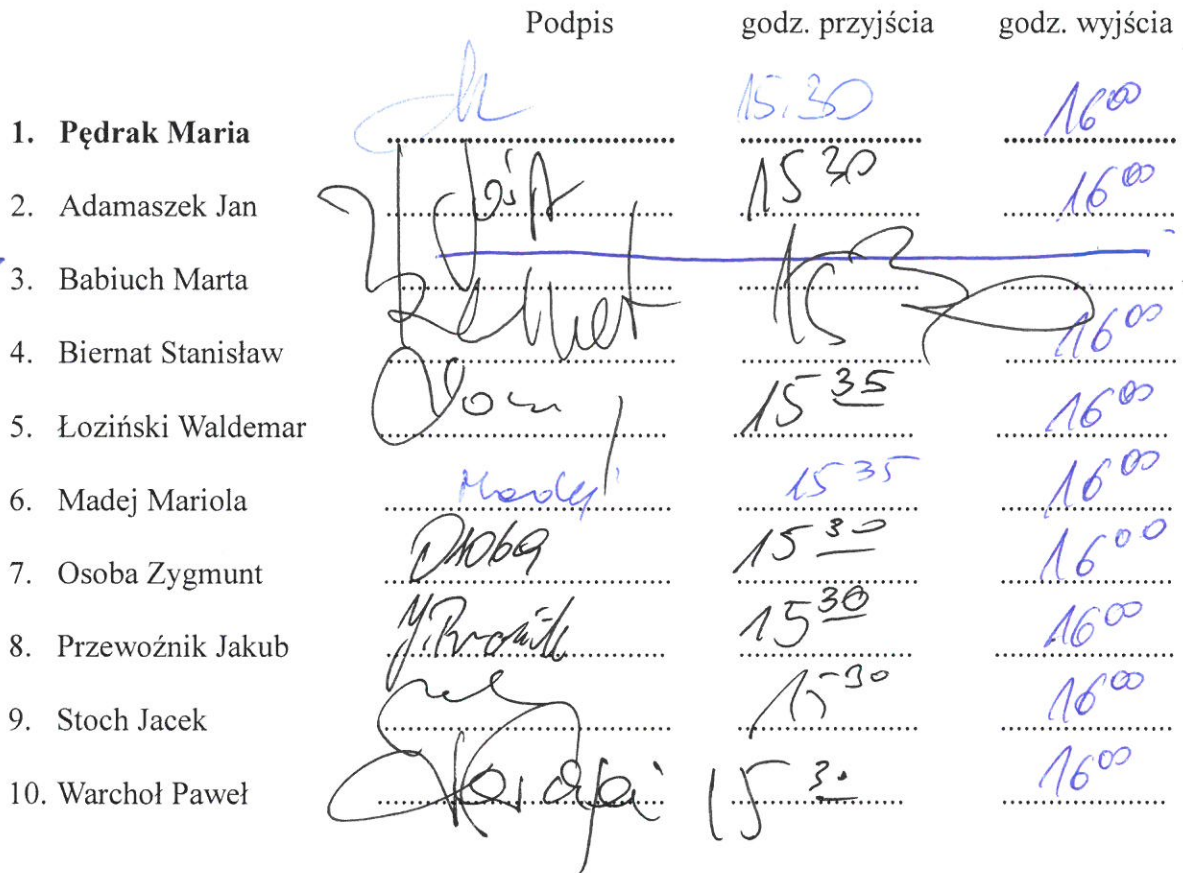 Podpis godz. przyjścia godz. wyjścia
1. Pędrak Maria 15.30 16 00
2. Adamaszek Jan 15 30 16 00
3. Babiuch Marta
4. Biernat Stanisław 16 00
5. Łoziński Waldemar 15 35 16 00
6. Madej Mariola Madej 15 35 16 00
7. Osoba Zygmunt Osoba 15 30 16 00
8. Przewoźnik Jakub 15 30 16 00
9. Stoch Jacek 15 30 16 00
10. Warchoł Paweł 15 30 16 00